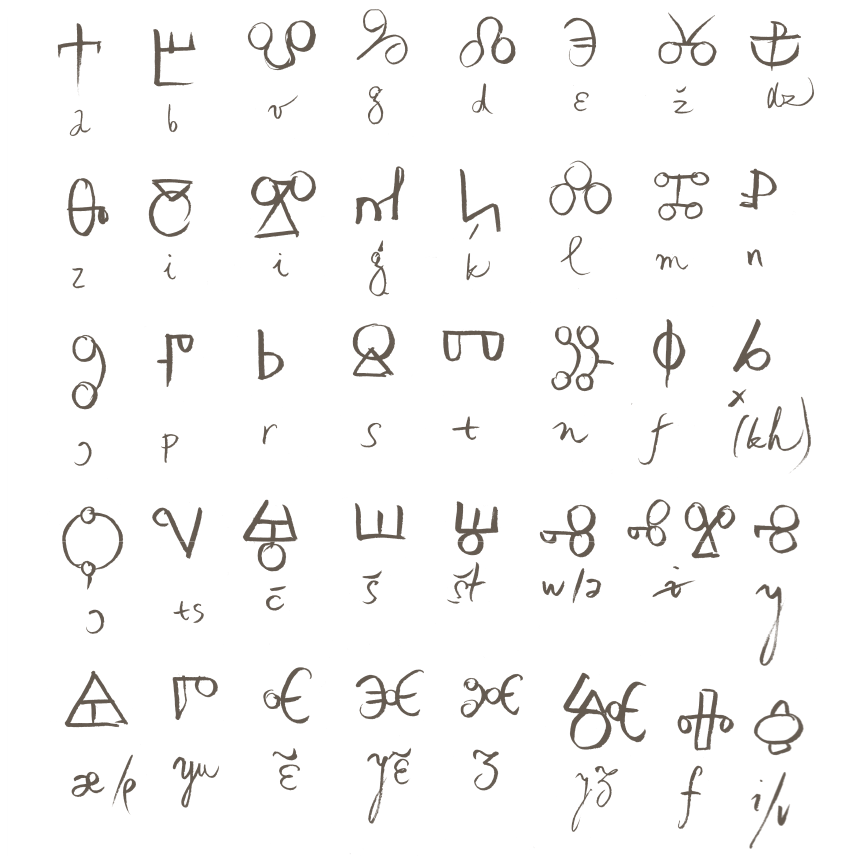 ⰰ ⰱ ⰲ ⰳ ⰴ ⰵ ⰶ ⰷ
a b v g d ɛ ž dz
ⰸ ⰺ ⰹ ⰼ ⰽ ⰾ ⰿ ⱀ
z i i ǵ k l m n
ⱁ ⱂ ⱃ ⱄ ⱅ ⱆ ⱇ ⱈ
ɔ p r s t u f x (kh)
ⱉ ⱌ ⱍ ⱎ ⱋ ⱏ ⱏⰹ ⱐ
ɔ ts č š št w/ə ɨ y
ⱑ ⱓ ⱔ ⱗ ⱘ ⱙ ⱚ ⱛ
yu ɛ̃ yɛ̃ f i/v